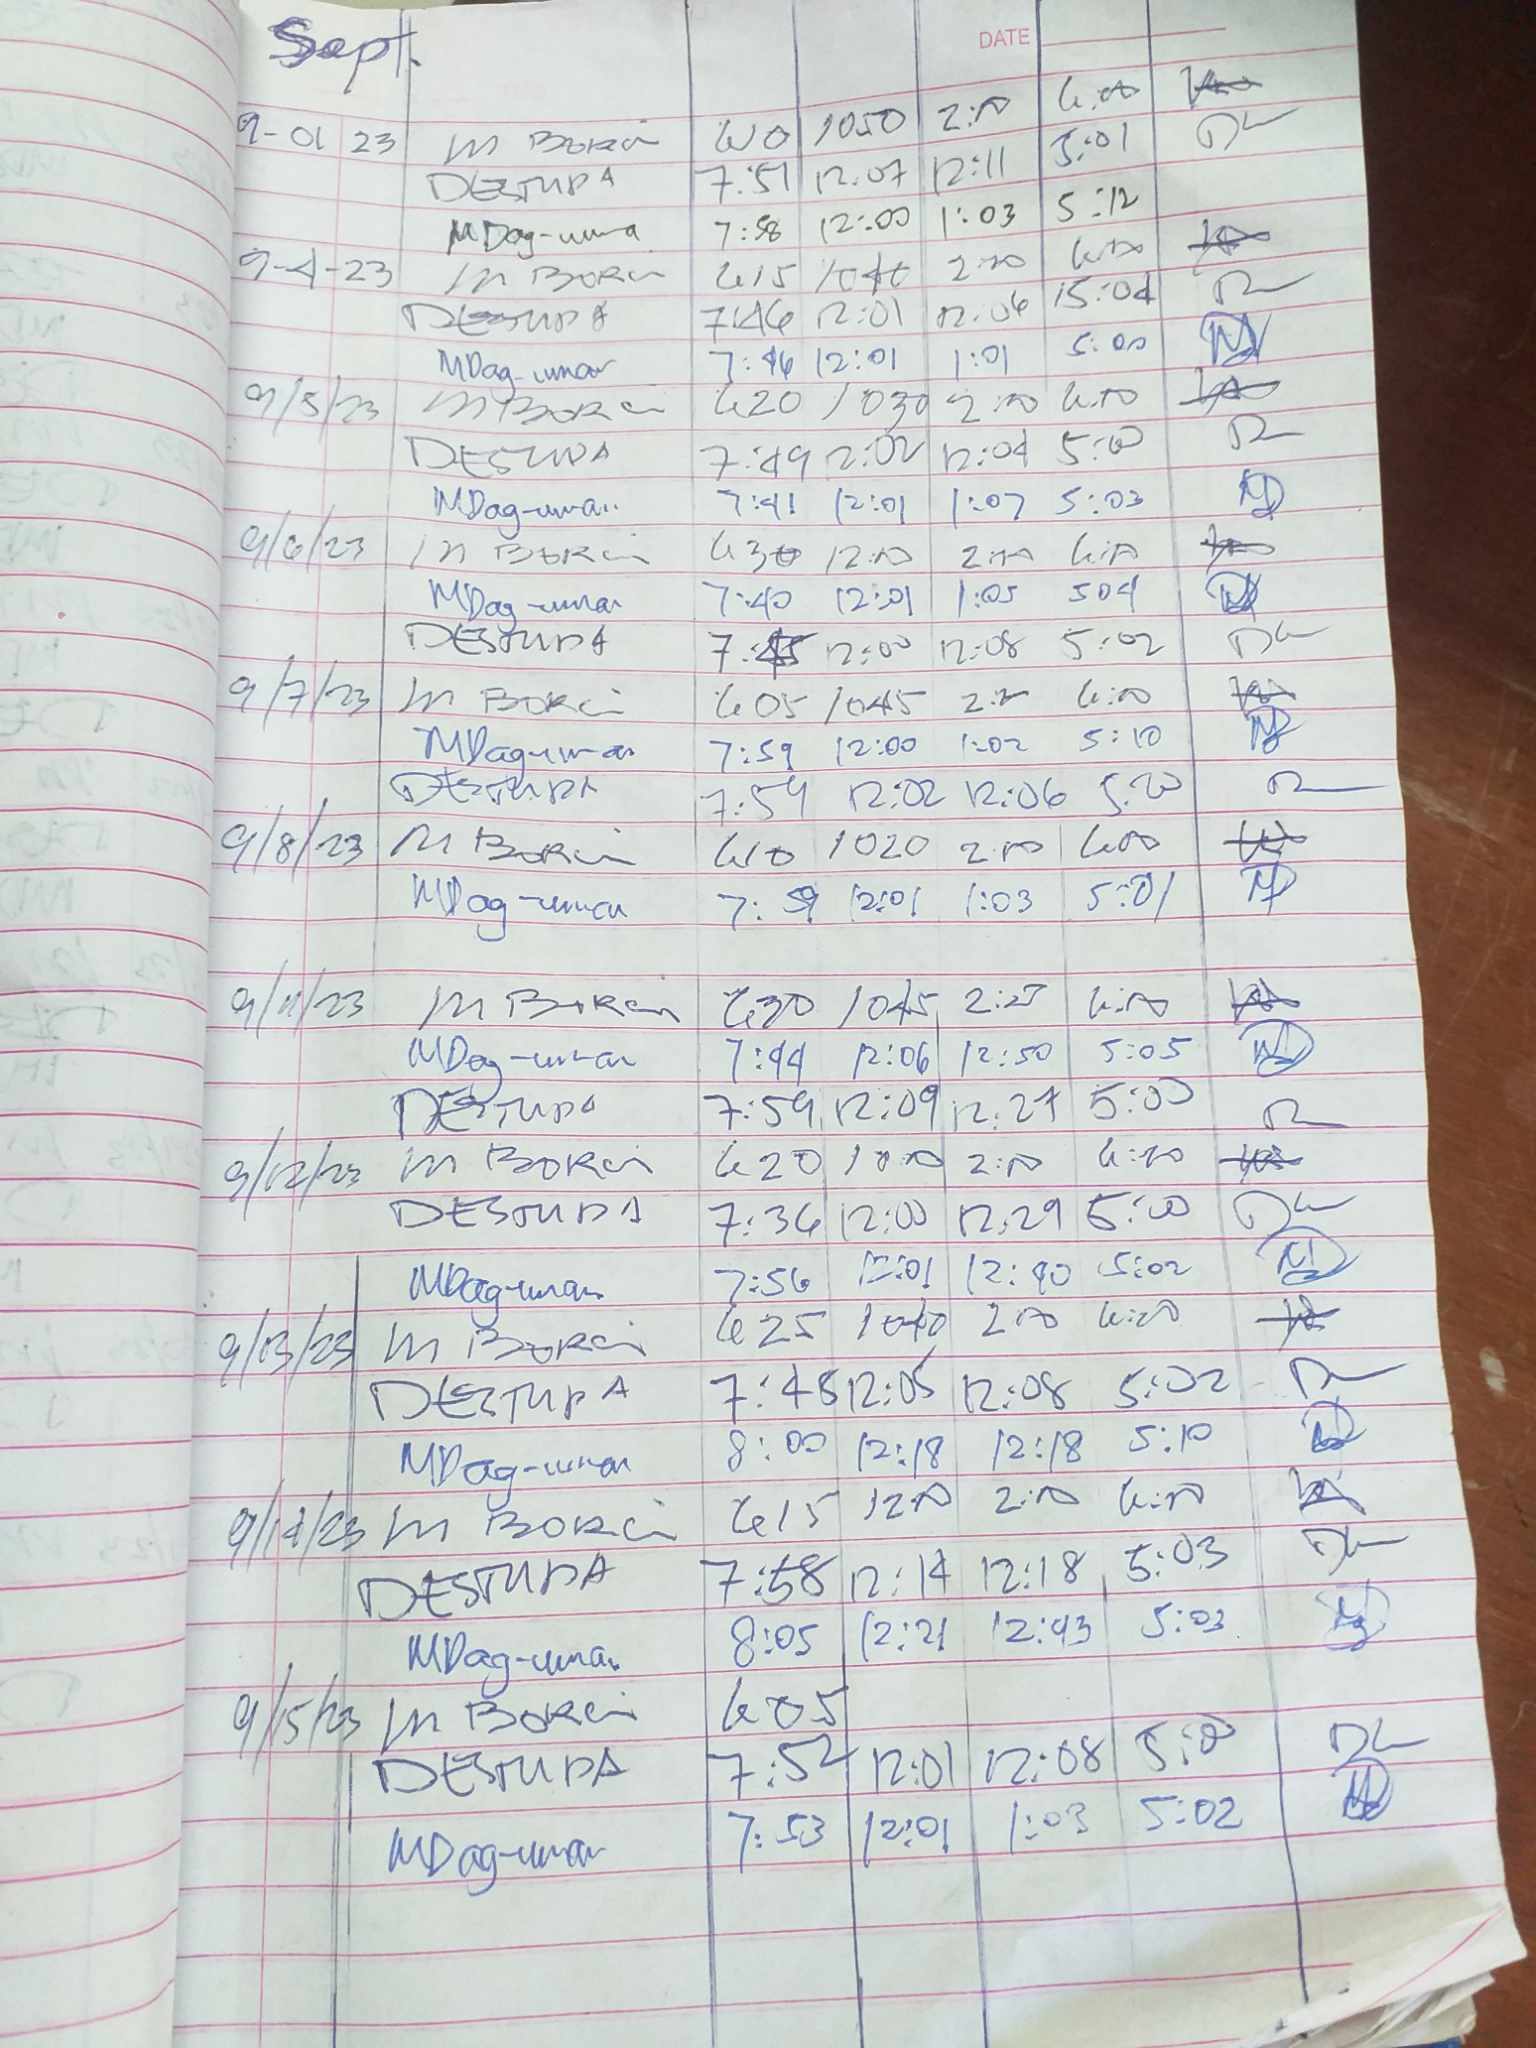 Sept.
DATE
9-01 23 M Borci 610 1050 2:00 6:00
DESTUPA 7:51 12:07 12:11 5:01
MDag-uman 7:58 12:00 1:03 5:12
9-4-23 M Borci 615 1040 2:00 6:00
DESTUPA 7:46 12:01 12:06 5:04
MDag-uman 7:46 12:01 1:01 5:00
9/5/23 M Borci 620 1030 2:00 6:00
DESTUPA 7:49 12:02 12:04 5:00
MDag-uman 7:41 12:01 1:07 5:03
9/6/23 M Borci 630 12:00 2:00 6:00
MDag-uman 7:40 12:01 1:05 504
DESTUPA 7:45 12:00 12:08 5:02
9/7/23 M Borci 605 1045 2:00 6:00
MDag-uman 7:59 12:00 1:02 5:10
DESTUPA 7:59 12:02 12:06 5:00
9/8/23 M Borci 610 1020 2:00 6:00
MDag-uman 7:59 12:01 1:03 5:01
9/11/23 M Borci 630 1045 2:25 6:00
MDag-uman 7:44 12:06 12:50 5:05
DESTUPA 7:59 12:09 12:27 5:00
9/12/23 M Borci 620 10:00 2:00 6:00
DESTUPA 7:36 12:00 12:29 5:00
MDag-uman 7:56 12:01 12:40 5:02
9/13/23 M Borci 625 1040 2:00 6:00
DESTUPA 7:48 12:05 12:08 5:02
MDag-uman 8:00 12:18 12:18 5:10
9/14/23 M Borci 615 12:00 2:00 6:00
DESTUPA 7:58 12:14 12:18 5:03
MDag-uman 8:05 12:21 12:43 5:03
9/15/23 M Borci 605
DESTUPA 7:52 12:01 12:08 5:00
MDag-uman 7:53 12:01 1:03 5:02